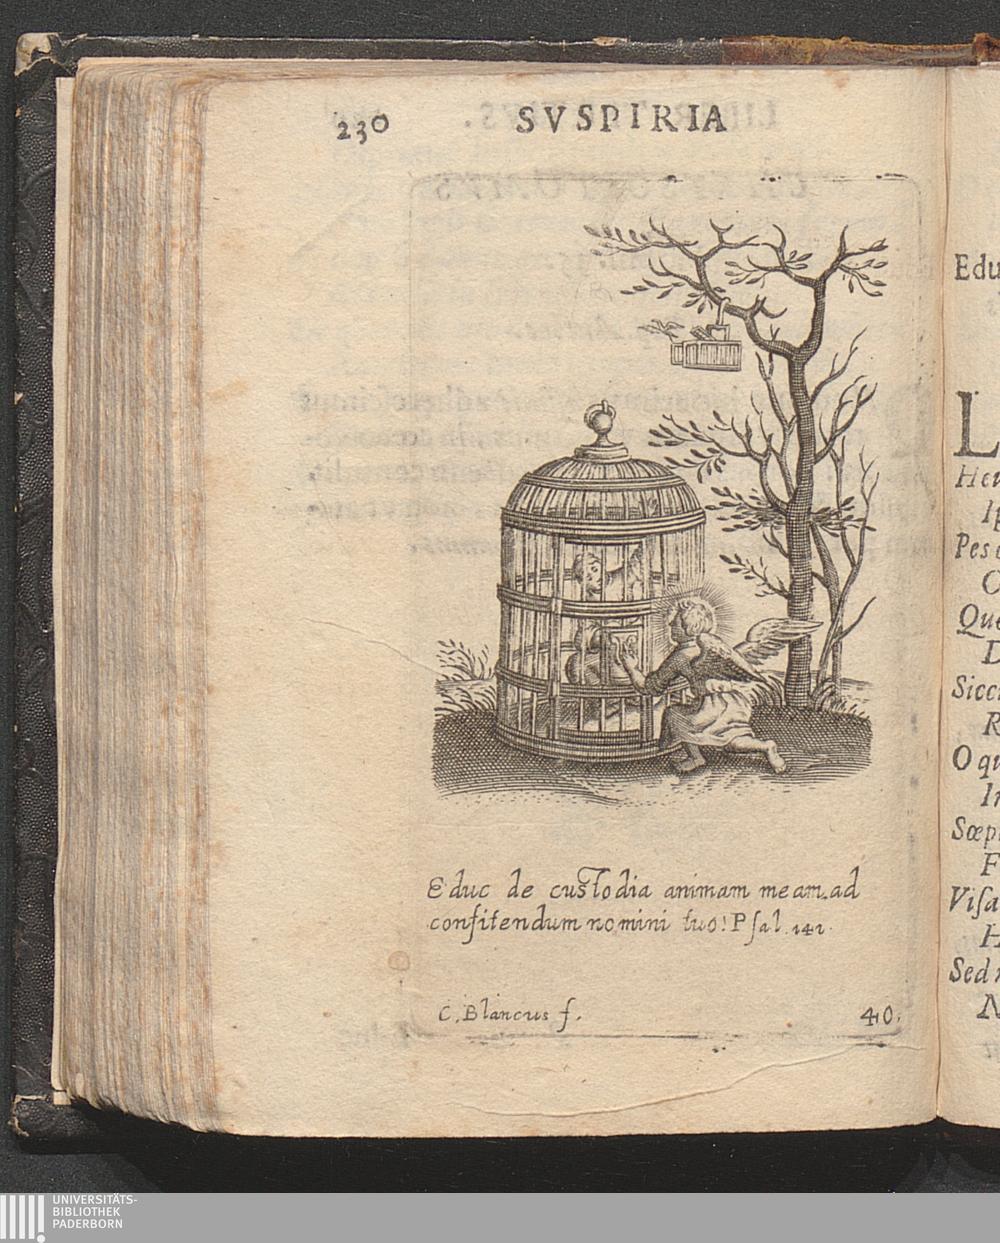 230 SVSPIRIA
Educ de custodia animam meam. ad
confitendum nomini tuo! Psal. 141.
C. Blancus f. 40.
Edu
L
Heu
Pes
O
Que
D
Sicci
R
O qu
In
Sæp
F
Visa
H
Sed
N
UNIVERSITÄTS-
BIBLIOTHEK
PADERBORN